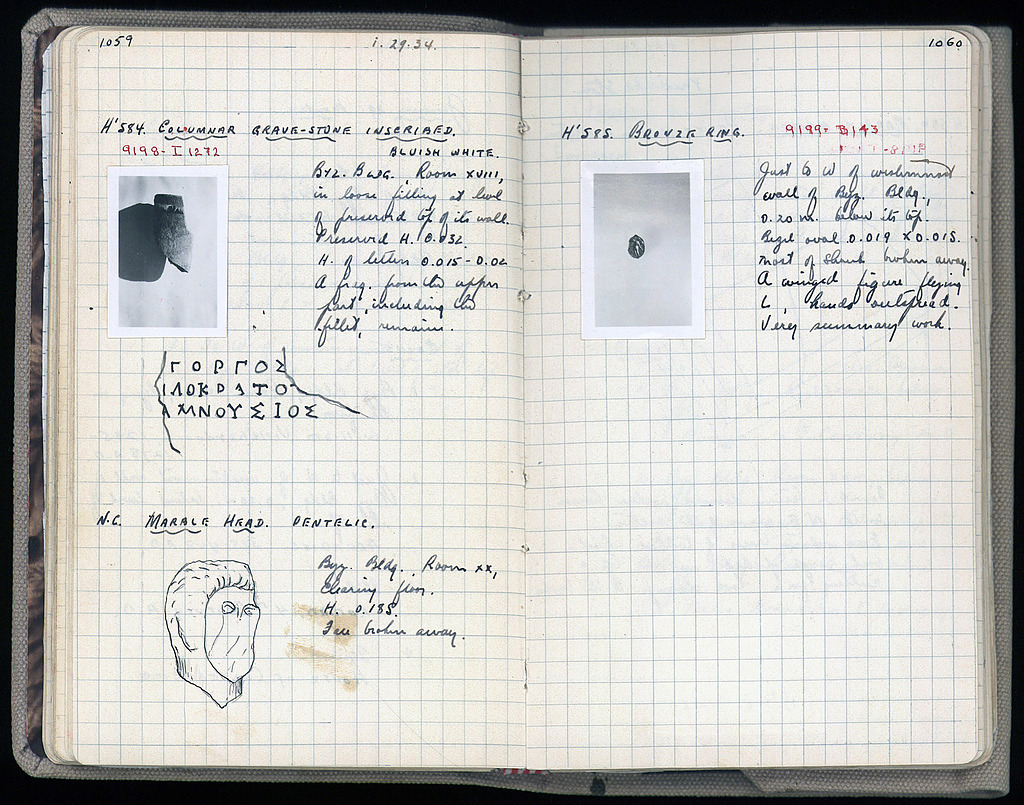 1059
i. 29.34.
H'584. COLUMNAR GRAVE-STONE INSCRIBED.
9198-I 1272
BLUISH WHITE.
Byz. Bldg. Room XVIII,
in loose filling at level
of preserved top of its wall.
Preserved H. 0.032.
H. of letters 0.015-0.02
A frag. from the upper
part, including the
fillet, remains.
ΓΟΡΓΟΣ
ΙΛΟΚΡΑΤΟ
ΑΜΝΟΥΣΙΟΣ
N.G. MARBLE HEAD. PENTELIC.
Byz. Bldg. Room XX,
clearing floor.
H. 0.185.
Face broken away.
1060
H'585. BRONZE RING.
9199- B 143
Just to W of westernmost
wall of Byz. Bldg.,
0.20 m. below its top.
Bezel oval 0.019 x 0.015.
most of shank broken away.
A winged figure flying
L, hands outspread.
Very summary work.